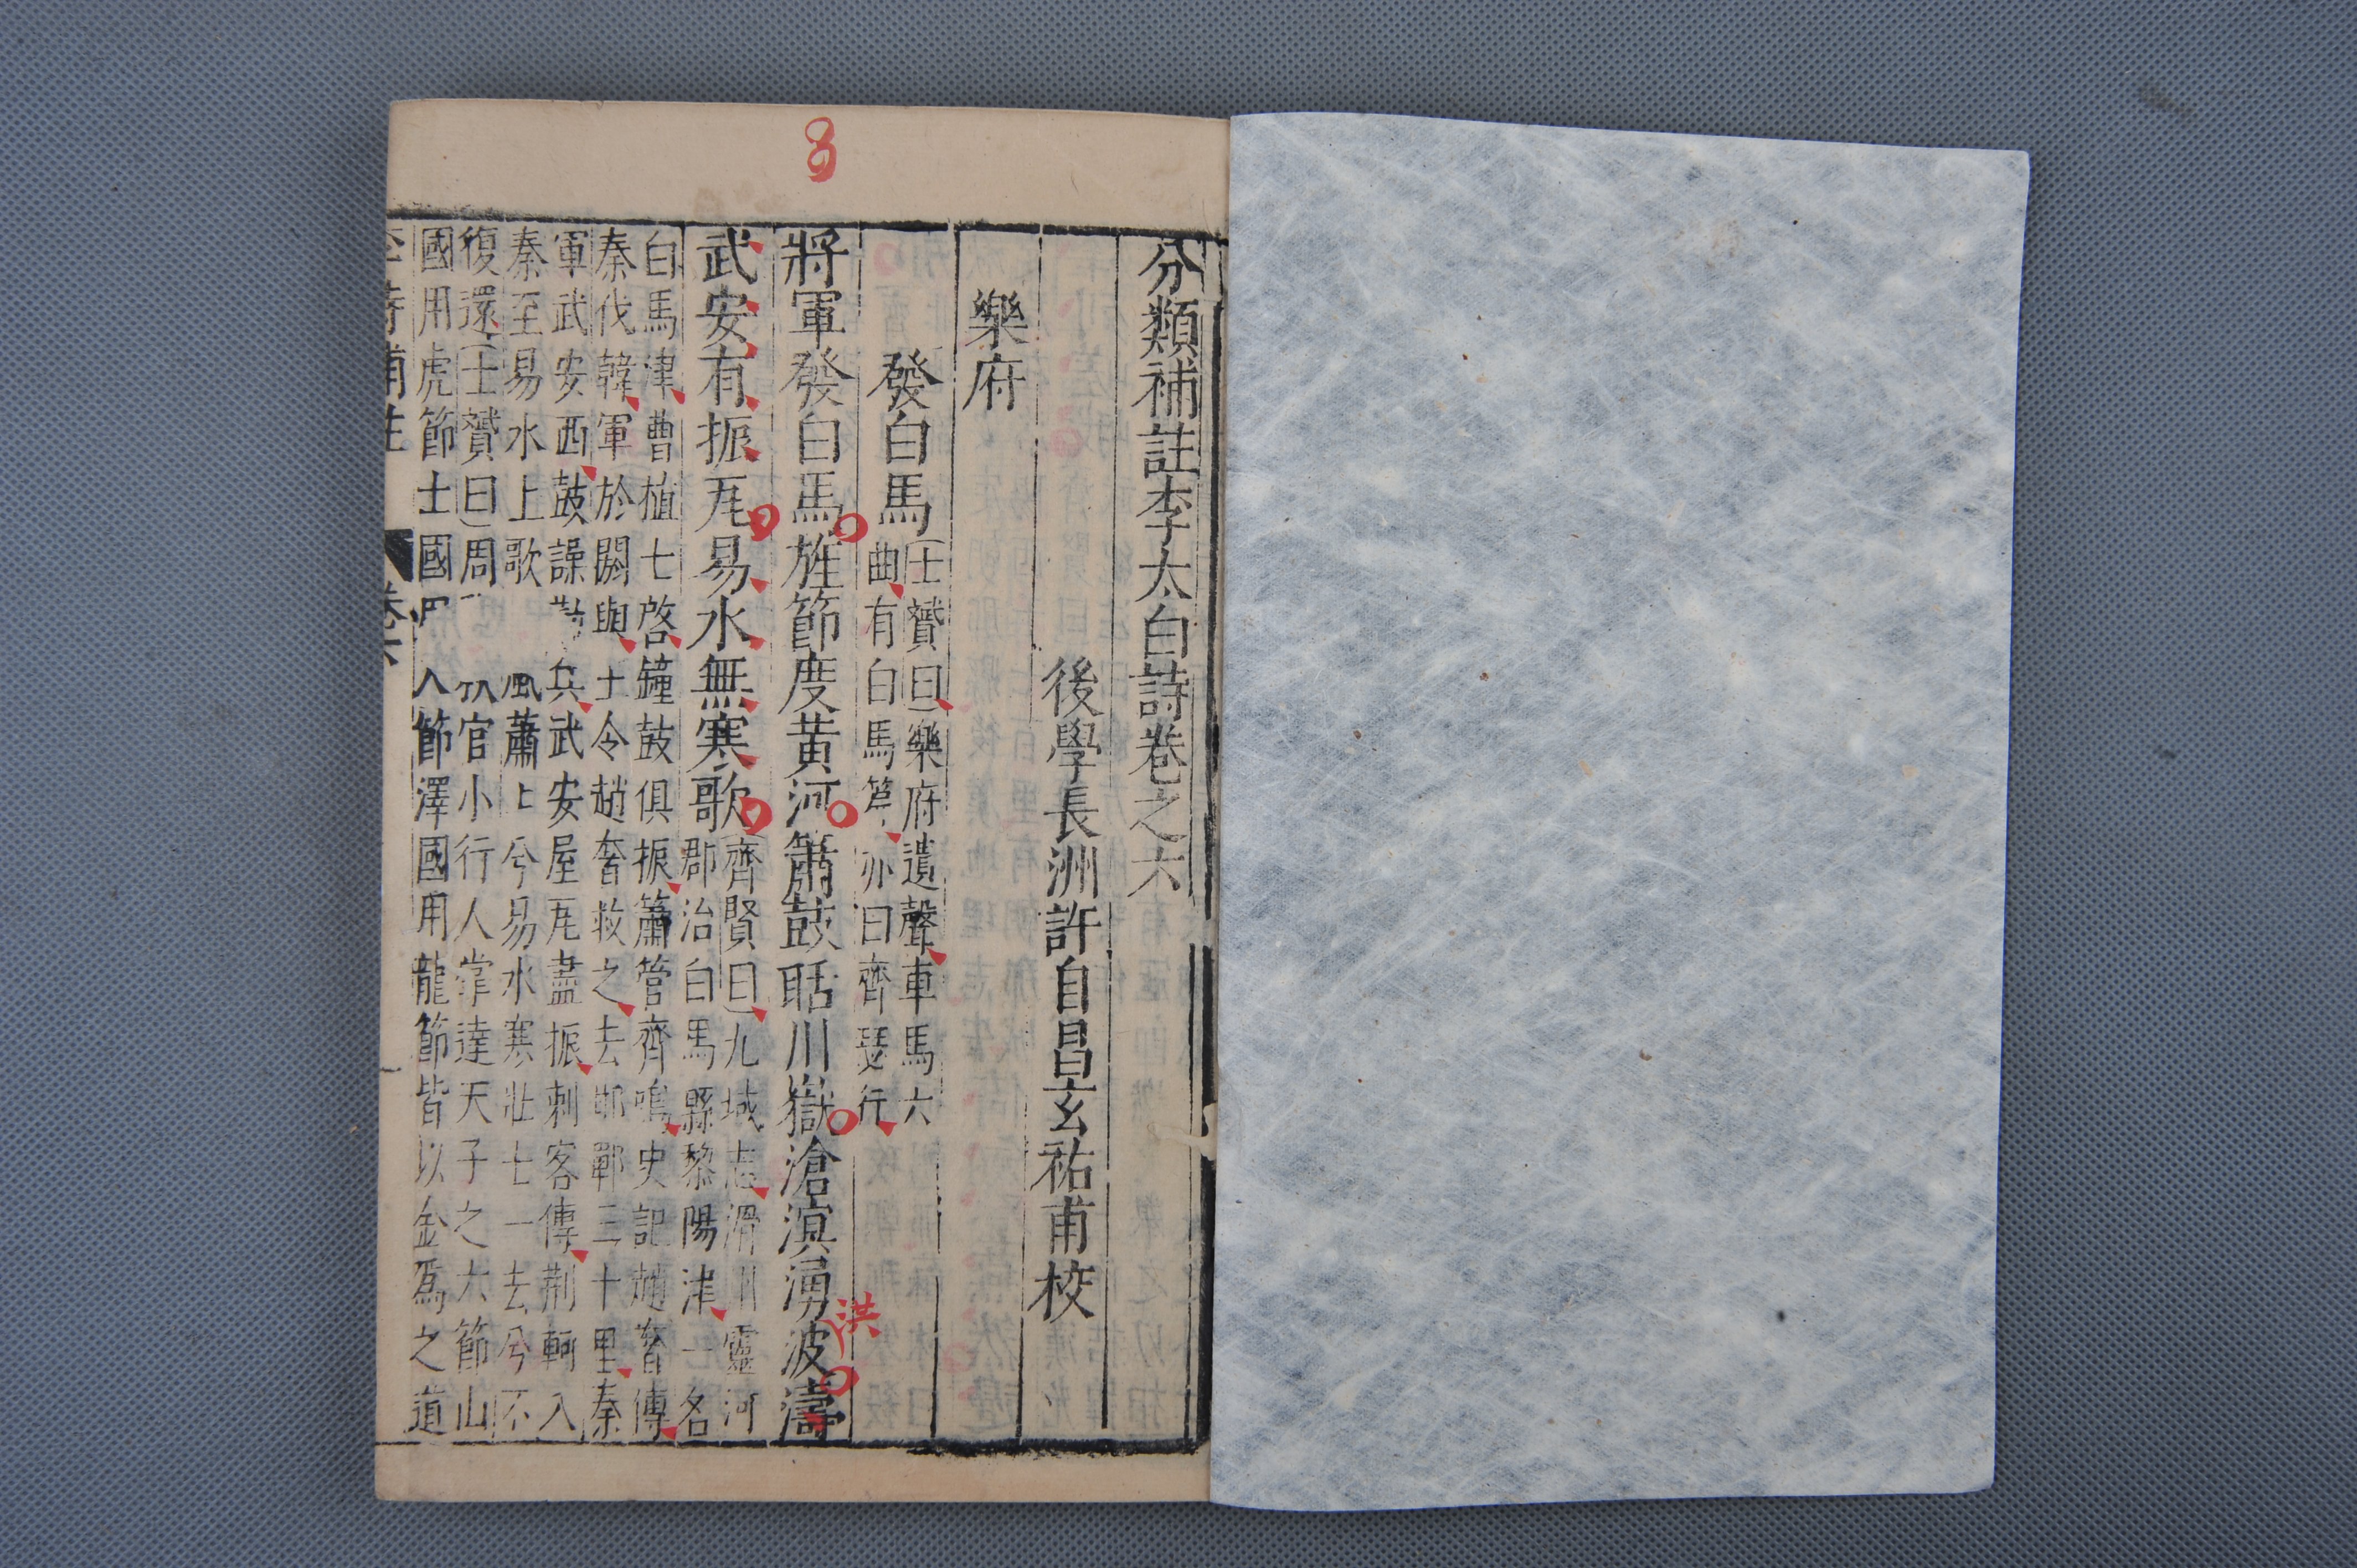 分類補註李太白詩卷之六
後學長洲許自昌玄祐甫校
樂府
發白馬
士贇曰樂府遺聲車馬六
曲有白馬篇亦曰齊瑟行
將軍發白馬旌節度黃河簫鼓聒川嶽滄溟湧波濤
洪
武安有振瓦易水無寒歌
齊賢曰九域志滑州靈河
郡治白馬縣黎陽津一名
白馬津曹植七啓鐘鼓俱振簫管齊鳴史記趙奢傳
秦伐韓軍於閼與王令趙奢救之去邯鄲三十里秦
軍武安西鼓譟勒兵武安屋瓦盡振刺客傳荆軻入
秦至易水上歌風蕭上兮易水寒壯士一去兮不
復還士贇曰周官小行人掌達天子之六節山
國用虎節土國用人節澤國用龍節皆以金爲之道